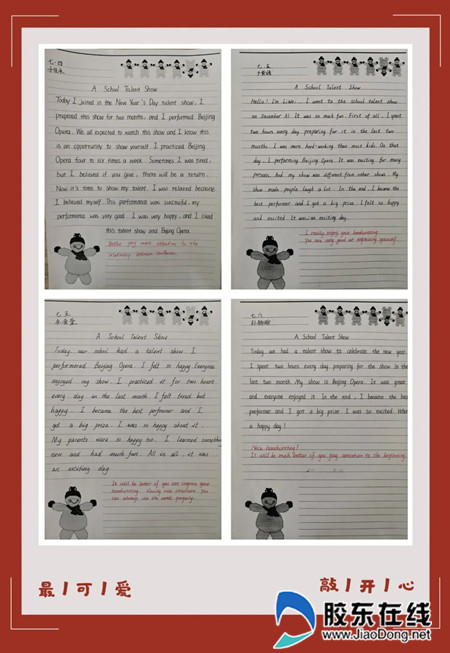 七.四
A School Talent Show
Today I joined in the New Year's Day talent show. I
prepared this show for two months, and I performed Beijing
Opera. We all expected to watch this show and I knew this
is an opportunity to show yourself. I practiced Beijing
Opera four to six times a week. Sometimes I was tired,
but I believed if you give, there will be a return.
Now it's time to show my talent. I was relaxed because
I believed myself. This performance was successful, my
performance was very good. I was very happy, and I liked
this talent show and Beijing Opera.
Better pay more attention to the
relationship between sentences.
七.五
A School Talent Show
Hello! I'm I went to the school talent show
on December 31. It was so much fun. First of all, I spent
two hours every day preparing for it in the last two
months. I was more hard-working than most kids. On that
day, I performing Beijing Opera. It was exciting for many
persons. And my show was different from other shows. My
show made people laugh a lot. In the end, I became the
best performer and I got a big prize. I felt so happy
and excited. It was an exciting day.
I really enjoy your handwriting.
You are very good at expressing yourself.
七.五
A School Talent Show
Today, our school had a talent show. I
performed Beijing Opera. I felt so happy. Everyone
enjoyed my show. I practiced it for two hours
every day in the last month. I felt tired but
happy. I became the best performer and I
got a big prize. I was so happy about it.
My parents were so happy, too. I learned something
new and had much fun. All in all, it was
an exciting day.
It will be better if you can improve your
handwriting. Having nice structure. You
can always use the words properly.
七.六
A School Talent Show
Today we had a talent show to celebrate the new year.
I spent two hours every day preparing for the show in the
last two month. My show is Beijing Opera. It was great
and everyone enjoyed it. In the end, I became the best
performer and I got a big prize. I was so excited. What
a happy day!
Nice handwriting!
It will be much better if you pay attention to the beginning.
最/可/爱
敲/开/心
胶东在线
www.JiaoDong.net